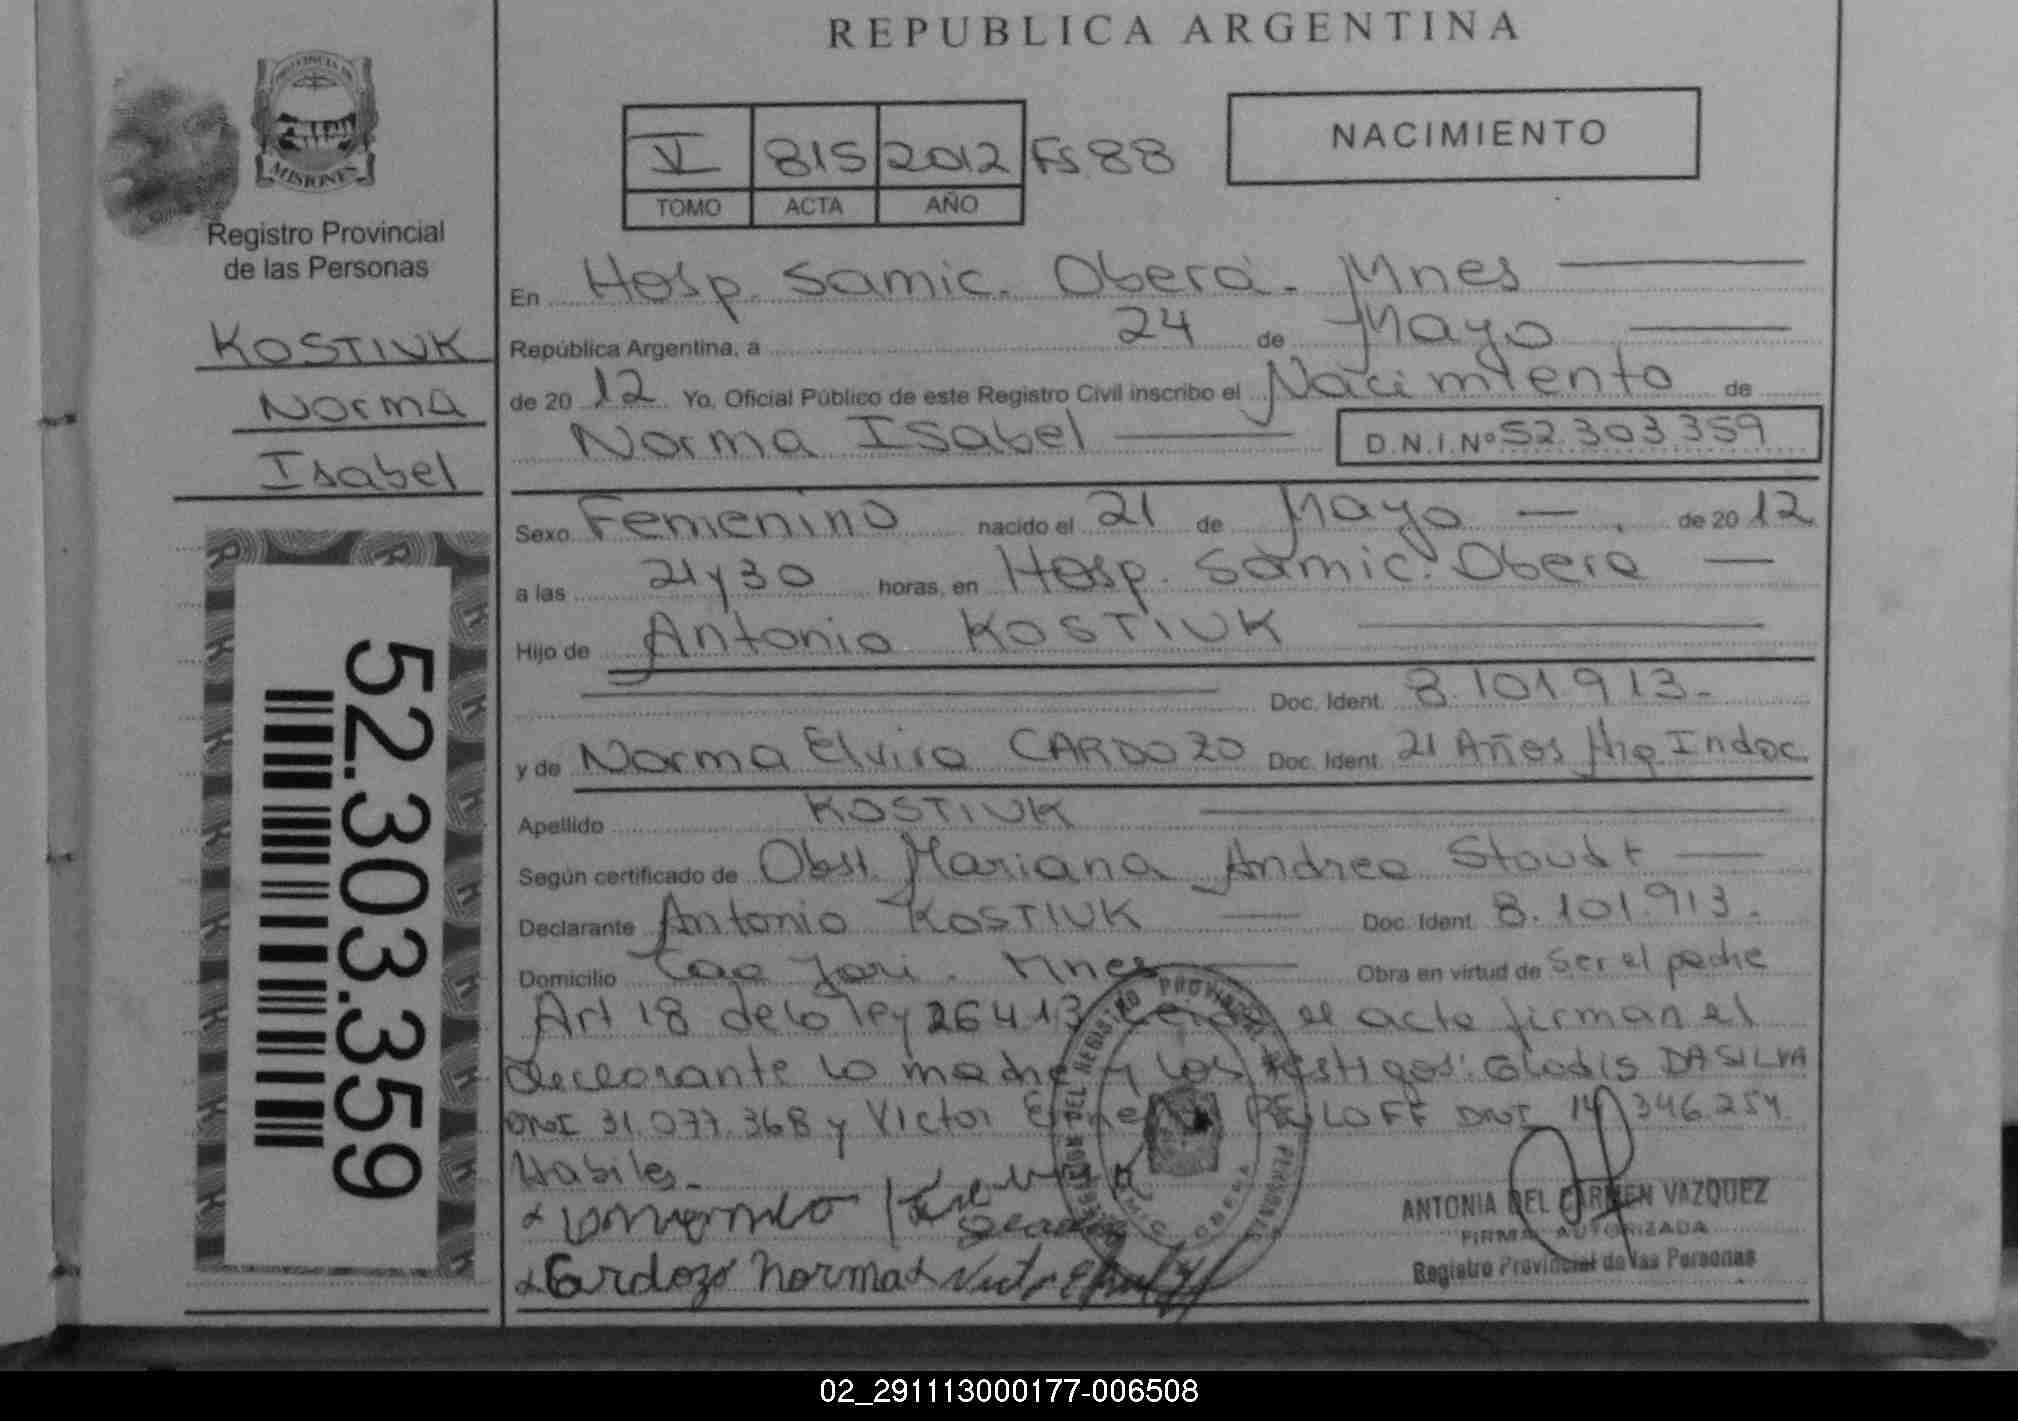 REPUBLICA ARGENTINA
PROVINCIA DE
MISIONES
Registro Provincial
de las Personas
KOSTIUK
Norma
Isabel
52.303.359
V 815 2012 Fs. 88
TOMO ACTA AÑO
NACIMIENTO
En Hosp. Samic. Oberá. Mnes
República Argentina, a 24 de Mayo
de 20 12 Yo, Oficial Público de este Registro Civil inscribo el Nacimiento de
Norma Isabel D.N.I.Nº 52.303.359
Sexo Femenino nacido el 21 de Mayo de 20 12
a las 21 y 30 horas, en Hosp. Samic. Oberá
Hijo de Antonio KOSTIUK
Doc. Ident. 8.101.913.
y de Norma Elvira CARDOZO Doc. Ident. 21 Años Indoc.
Apellido KOSTIUK
Según certificado de Obst. Mariana Andrea
Declarante Antonio KOSTIUK Doc. Ident. 8.101.913.
Domicilio Mnes Obra en virtud de Ser el padre
Art 18 de la ley 26413 el acta firman el
declarante la madre y los testigos: Gladis DA SILVA
DNI 31.077.368 y Victor DNI 346.254.
Habiles.
Cardozo Norma
ANTONIA DEL CARMEN VAZQUEZ
FIRMA AUTORIZADA
Registro Provincial de las Personas
02_291113000177-006508